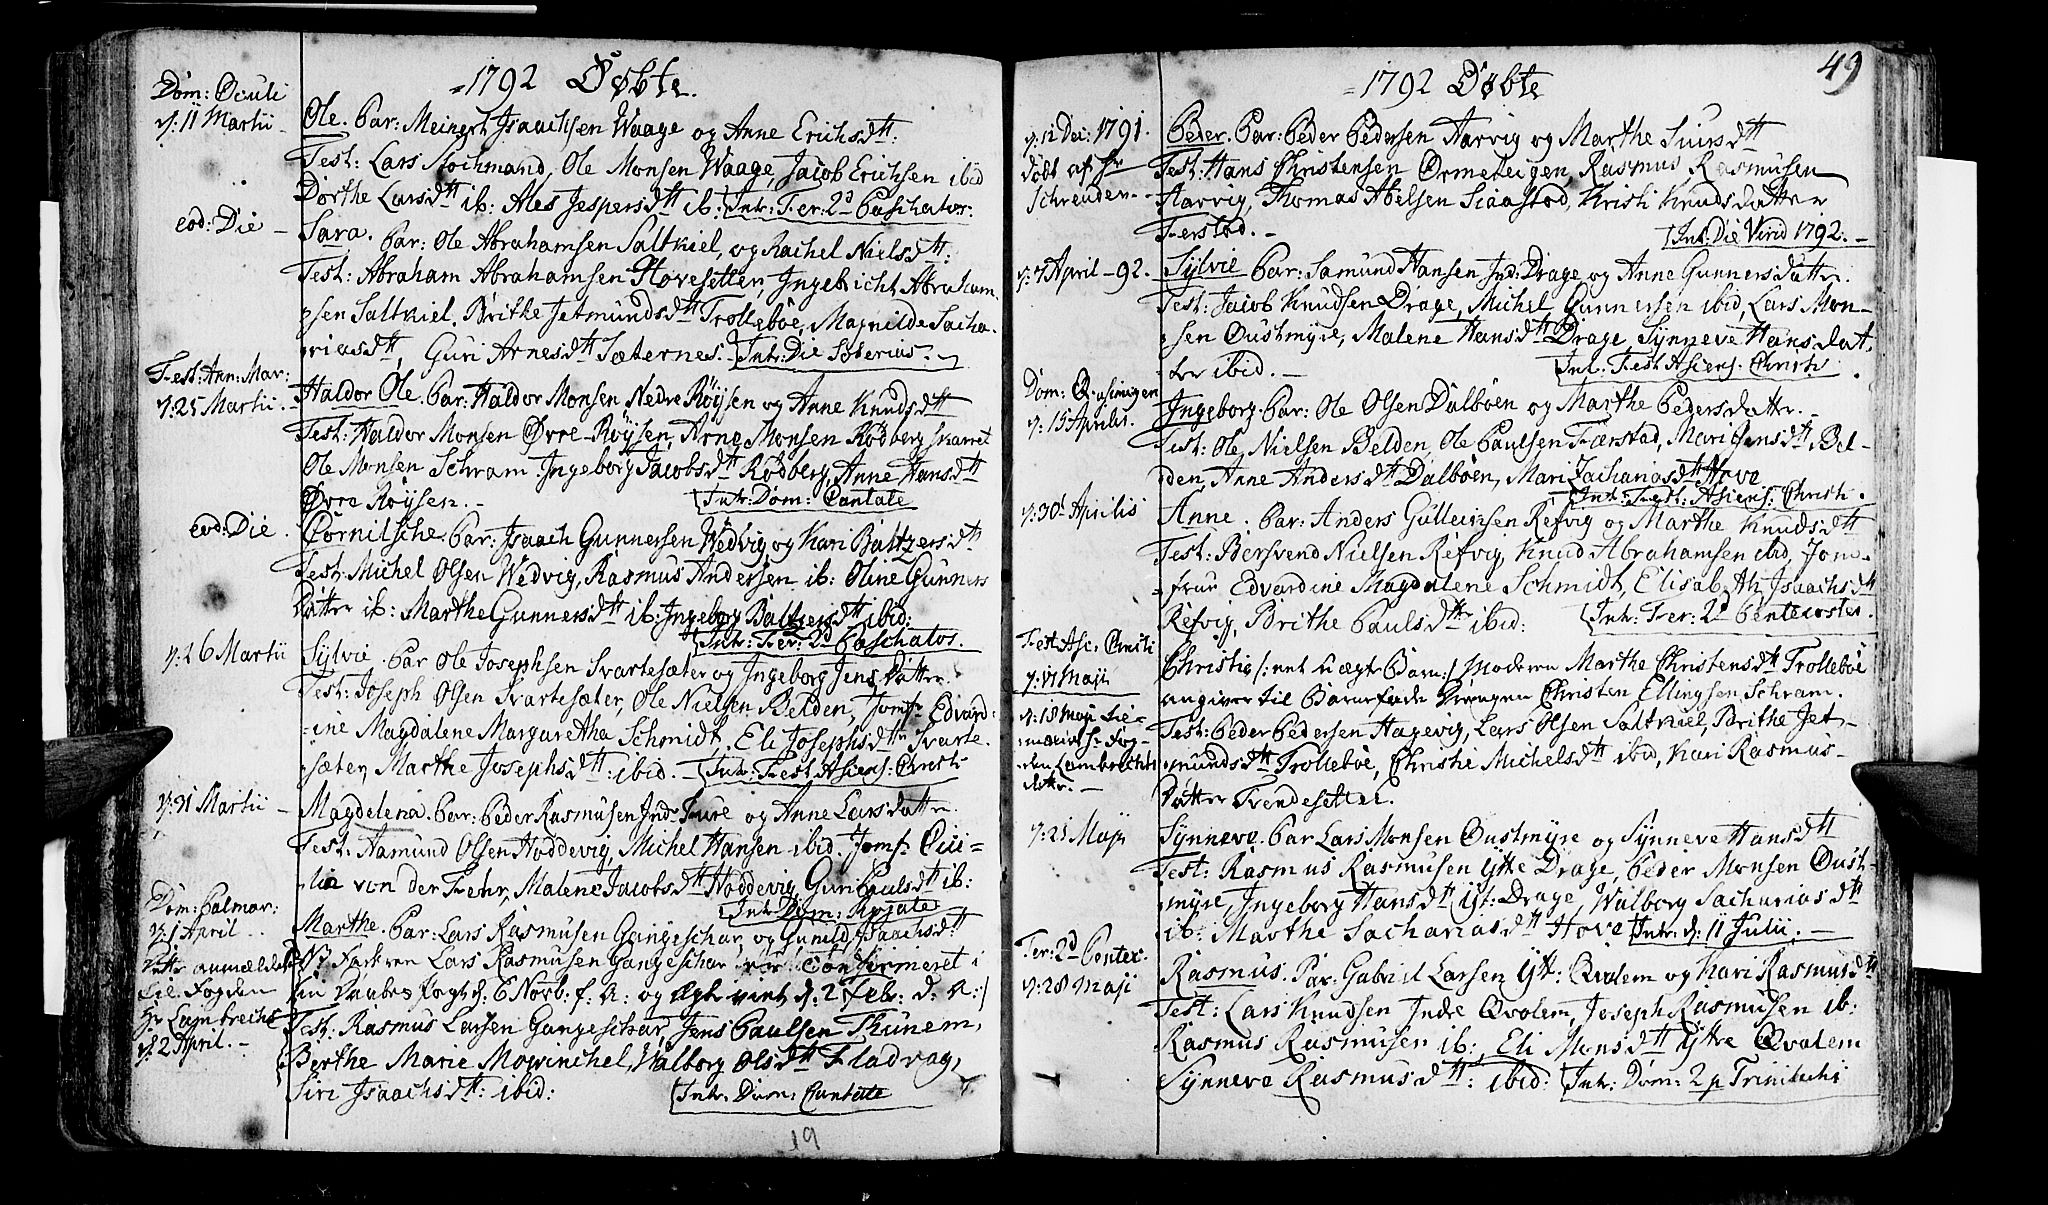 1792 Døbte.
Dom: Oculi
d: 11 Martii
Ole. Par: Meinert Isaachsen Waage og Anne Erichsdtt:
Test: Lars Stochmand, Ole Monsen Waage, Jacob Erichsen ibid
Dorthe Larsdtt ib: Ales Jespersdtt ib: Intr: Fer: 2d Paschatos:
eod: Die
Sara. Par: Ole Abrahamsen Saltkiel, og Rachel Nielsdtt:
Test: Abraham Abrahamsen Hovesetter, Ingebricht Abraham-
sen Saltkiel. Brithe Jetmundsdtt Trolleböe, Magnilde Sacha-
riasdtt, Guri Arnesdtt Sæternes. Intr: Die
Fest: Ann: Mar:
d: 25 Martii.
Haldor Ole. Par: Haldor Monsen Nedre Röysen og Anne Knudsdtt
Test: Haldor Monsen Øvre-Röysen, Arne Monsen Rödberg
Ole Monsen Schram Ingeborg Jacobsdtt Rödberg, Anne Hansdtt
Øvre Röysen. Intr: Dom: Cantate
eod: Die.
Cornilsche. Par: Isaach Gunnersen Wedvig og Kari Baltzersdtt
Test: Michel Olsen Wedvig, Rasmus Andersen ib: Oline Gunners
Datter ib: Marthe Gunnersdtt ib: Ingeborg Baltzersdtt ibid:
Intr: Fer: 2d Paschatos.
d: 26 Martii
Sylvie. Par Ole Josephsen Svartesæter og Ingeborg Jens Datter
Test: Joseph Olsen Svartesæter, Ole Nielsen Belden, Jomfr Edvard-
ine Magdalene Margaretha Schmidt. Eli Josephsdtr Svarte-
sæter, Marthe Josephsdtt: ibid. Intr: Fest Asiens: Christi
d: 31 Martii
Magdelena. Par: Peder Rasmusen Indr Fure og Anne Larsdatter
Test: Aamund Olsen Hoddevig, Michel Hansen ibid. Jomfr. Cici-
lia von der Fehr, Malene Jacobsdtt Hoddevig Guri Paulsdtt ib:
Intr Dom: Rogate
Dom: Palmar:
d: 1 April
Marthe. Par: Lars Rasmusen Gangeschar og Gunild Isaachsdtt
anmældet
til Fogden
Hr Lambrechts
d: 2 April.
NB Lars Rasmusen Gangeschar confirmeret i
d: 6 Novb: f. A: og d: 2 Febr: d: A:
Test: Rasmus Larsen Gangeschar, Jens Paulsen Thunem,
Berthe Marie Mowinchel, Walborg Olsdtt Fladrag,
Siri Isaachsdtt: ibid: Intr: Dom: Cantate
19
49
1792 Døbte
d: 12 Dec: 1791.
döbt af Hr
Schreuder
Peder. Par: Peder Pedersen Aarvig og Marthe Siursdtt
Test: Hans Christensen Ormeteigen, Rasmus Rasmusen
Aarvig, Thomas Abelsen Siaastad, Kristi Knudsdatter
Ferstad. Int: Die Virid 1792.
d: 7 April - 92.
Sylvie Par: Samund Hansen Ind: Drage og Anne Gunnersdatter.
Test: Jacob Knudsen Drage, Michel Gunnersen ibid, Lars Mon-
sen Oustmyre, Malene Hansdtt Drage, Synneve Hansdat-
ter ibid. Int: Fest Asiens: Christi
Dom: Qvasimogen
d: 15 Aprilis.
Ingeborg. Par: Ole Olsen Dalböen og Marthe Pedersdatter.
Test: Ole Nielsen Belden, Ole Paulsen Færstad, Mari Jensdtt Bel-
den, Anne Andersdtt Dalböen, Mari Zachariasdtt Hove
Intr: Fest: Asiens: Christi.
d: 30 Aprilis
Anne. Par: Anders Gulleicksen Refvig og Marthe Knudsdtt
Test: Bersvend Nielsen Refvig, Knud Abrahamsen ibid, Jom-
frue Edvardine Magdalene Schmidt, Elisabeth Isaachsdtt
Refvig, Brithe Paulsdtt ibid: Intr: Fer: 2d Pentecostes.
Fest Asc: Christi
d: 17 Maji
d: 18 Maji
Fog-
den Lambrechts
Christie /: et uægte Barn:/ Moderen Marthe Christensdtt Trolleböe
angiver til Barnefader Drengen Christen Ellingsen Schram.
Test: Peder Pedersen Hagevig, Lars Olsen Saltkiel, Brithe Jet-
mundsdtt Trolleböe, Christie Michelsdtt ibid, Kari Rasmus-
datter Trendesetter.
d: 25 Maji
Synneve. Par Lars Monsen Oustmyre og Synneve Hansdtt
Test: Rasmus Rasmusen Ytre Drage, Peder Monsen Oust-
myre, Ingeborg Hansdtt Yt: Drage, Walborg Sachariasdtt
ib: Marthe Sachariasdtt Hove Intr: d: 11 Julii.
Fer: 2d Pentec:
d: 28 Maji
Rasmus. Par: Gabriel Larsen Yt: Qvalem og Kari Rasmusdtt
Test: Lars Knudsen Indre Qvalem, Joseph Rasmusen ib:
Rasmus Rasmusen ib:, Eli Monsdtt Ytre Qvalem
Synneve Rasmusdtt: ibid: Intr: Dom: 2 p Trinitatis